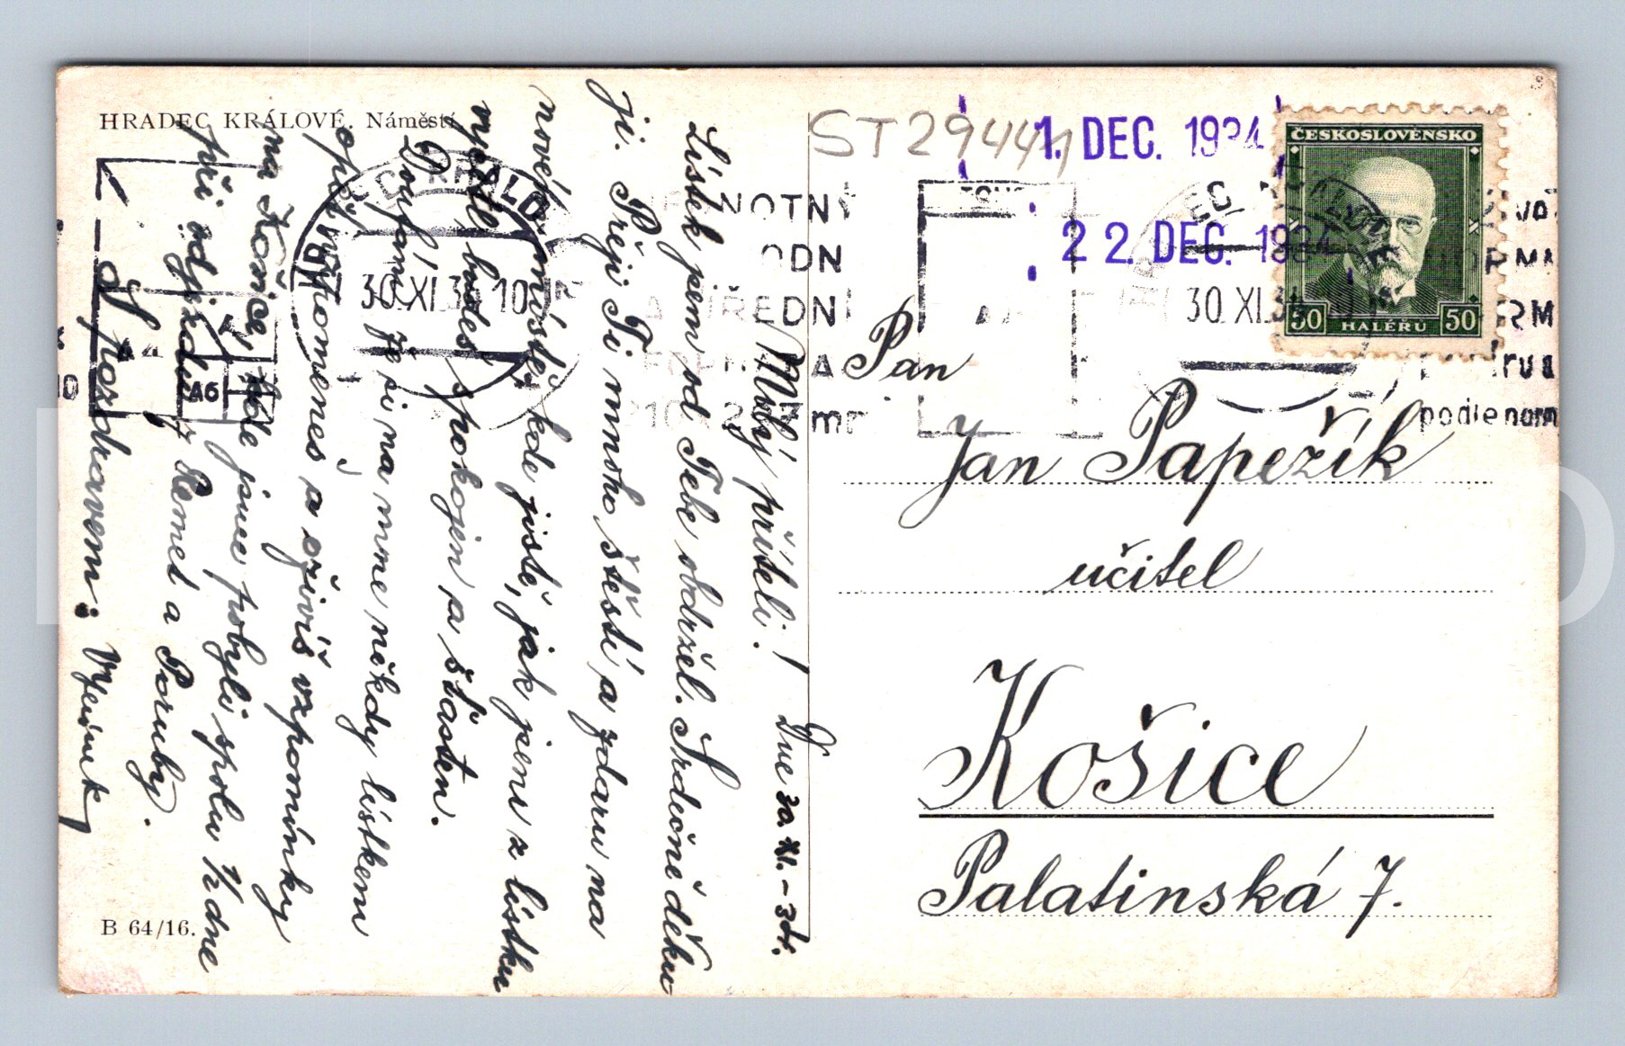 HRADEC KRÁLOVÉ. Náměstí.
Dne 30. XI. - 34.
Milý příteli!
Lístek jsem od Tebe obdržel. Srdečně děku
ji. Přeji Ti mnoho štěstí a zdaru na
novém místě, kde jistě, jak jsem z lístku
budeš spokojen a šťasten.
Doufám, že si na mne někdy lístkem
a oživíš vzpomínky
na Košice, kde jsme pobyli spolu 1/2 dne
při odjezdu z Remet a Poruby.
S pozdravem:
B 64/16.
ST29447
1. DEC. 1934
22. DEC. 1934
ČESKOSLOVENSKO
50 HALÉŘŮ 50
30.XI.34 10
30 XI.34
A6
podle norm
Pan
Jan Papežík
učitel
Košice
Palatinská 7.